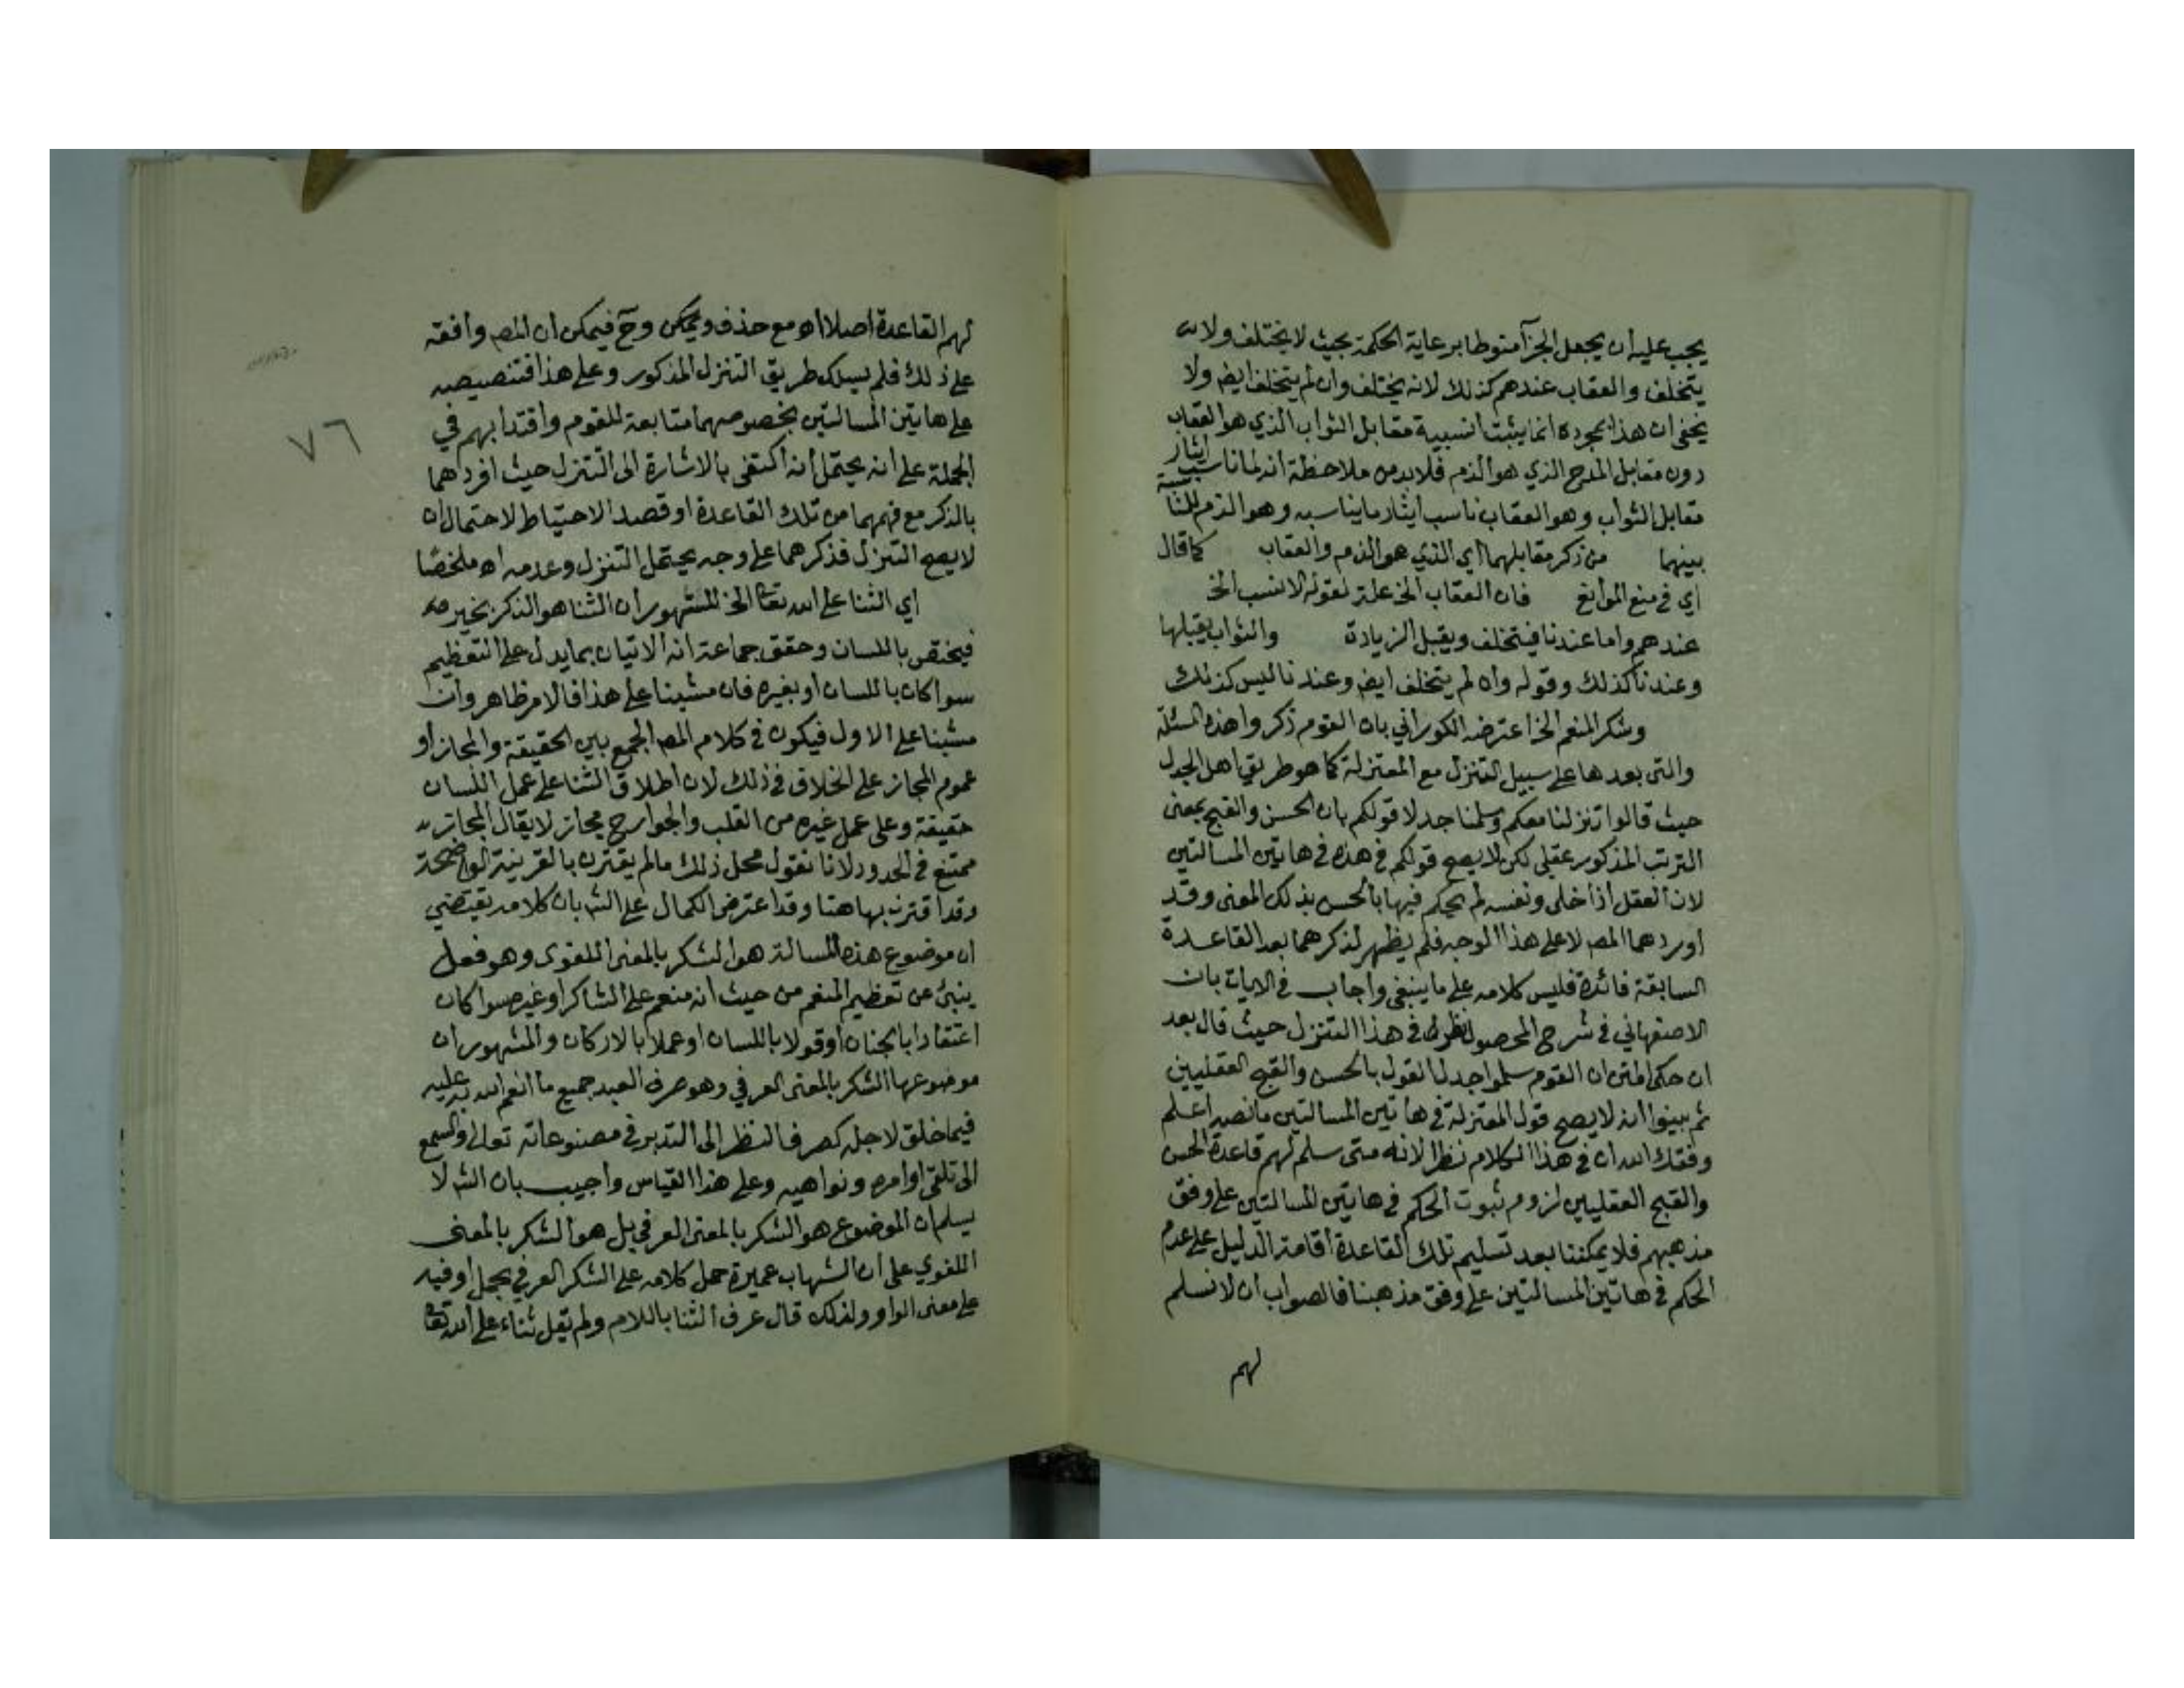 يجب عليه ان يجعل الجزآ منوطا برعاية الحكمة بحيث لا يختلف ولا
يتخلف والعقاب عندهم كذلك لانه يختلف وان لم يتخلف ايضا ولا
يخفى ان هذا بمجرده انما يثبت انسبية مقابل الثواب الذي هو العقاب
دون مقابل المدح الذي هو الذم فلا بد من ملاحظة انه لما ناسب ايثار
مقابل الثواب وهو العقاب ناسب ايثار ما يناسبه وهو الذم للمناسبة
بينهما من ذكر مقابلهما اي الذي هو الذم والعقاب كما قال
اي في منع الموانع فان العقاب الخ علة لقوله الانسب الخ
عندهم واما عندنا فيتخلف ويقبل الزيادة والثواب يقبلها
وعندنا كذلك وقوله وان لم يتخلف ايضا وعندنا ليس كذلك
وشكر المنعم الخ اعترضه الكوراني بان القوم ذكروا هذه المسئلة
والتي بعدها على سبيل التنزل مع المعتزلة كما هو طريق اهل الجدل
حيث قالوا تنزلنا معكم وسلمنا جدلا قولكم بان الحسن والقبح بمعنى
الترتب المذكور عقلي لكن لا يصح قولكم في هذه في هاتين المسالتين
لان العقل اذا خلى ونفسه لم يحكم فيها بالحسن بذلك المعنى وقد
اوردهما المص لا على هذا الوجه فلم يظهر لذكرهما بعد القاعدة
السابقة فائدة فليس كلامه على ما ينبغي واجاب في الايات بان
الاصفهاني في شرح المحصول نظر له في هذا التنزل حيث قال بعد
ان حكى المتن ان القوم سلموا جدلا القول بالحسن والقبح العقليين
ثم بينوا انه لا يصح قول المعتزلة في هاتين المسالتين ما نصه اعلم
وفقك الله ان في هذا الكلام نظرا لانه متى سلم لهم قاعدة الحسن
والقبح العقليين لزوم ثبوت الحكم في هاتين المسالتين على وفق
مذهبهم فلا يمكننا بعد تسليم تلك القاعدة اقامة الدليل على عدم
الحكم في هاتين المسالتين على وفق مذهبنا فالصواب ان لا نسلم
لهم
لهم القاعدة اصلا اه مع حذف ويمكن وح فيمكن ان المص وافقه
على ذلك فلم يسلك طريق التنزل المذكور وعلى هذا فتنصيصه
على هاتين المسالتين بخصوصهما متابعة للقوم واقتدا بهم في
الجملة على انه يحتمل انه اكتفى بالاشارة الى التنزل حيث افردهما
بالذكر مع فهمهما من تلك القاعدة او قصد الاحتياط لاحتمال ان
لا يصح التنزل فذكرهما على وجه يحتمل التنزل وعدمه اه ملخصا
اي الثنا على الله تعا الخ المشهور ان الثنا هو الذكر بخير
فيختص باللسان وحقق جماعة انه الاتيان بما يدل على التعظيم
سوا كان باللسان او بغيره فان مشينا على هذا فالامر ظاهر وان
مشينا على الاول فيكون في كلام المص الجمع بين الحقيقة والمجاز او
عموم المجاز على الخلاف في ذلك لان اطلاق الثنا على عمل اللسان
حقيقة وعلى عمل غيره من القلب والجوارح مجاز لا يقال المجاز
ممتنع في الحدود لانا نقول محل ذلك ما لم يقترن بالقرينة الواضحة
وقد اقترن بها هنا وقد اعترض الكمال على الش بان كلامه يقتضي
ان موضوع هذه المسالة هو الشكر بالمعنى اللغوى وهو فعل
ينبئ عن تعظيم المنعم من حيث انه منعم على الشاكر او غيره سوا كان
اعتقادا بالجنان او قولا باللسان او عملا بالاركان والمشهور ان
موضوعها الشكر بالمعنى العرفي وهو صرف العبد جميع ما انعم الله به عليه
فيما خلق لاجله كصرف النظر الى التدبر في مصنوعاته تعالى والسمع
الى تلقي اوامره ونواهيه وعلى هذا القياس واجيب بان الش لا
يسلم ان الموضوع هو الشكر بالمعنى العرفي بل هو الشكر بالمعنى
اللغوي على ان الشهاب عميرة حمل كلامه على الشكر العرفي بجعل او فيه
على معنى الواو ولذلك قال عرف الثنا باللام ولم يقل ثناء على الله تعا
٧٦